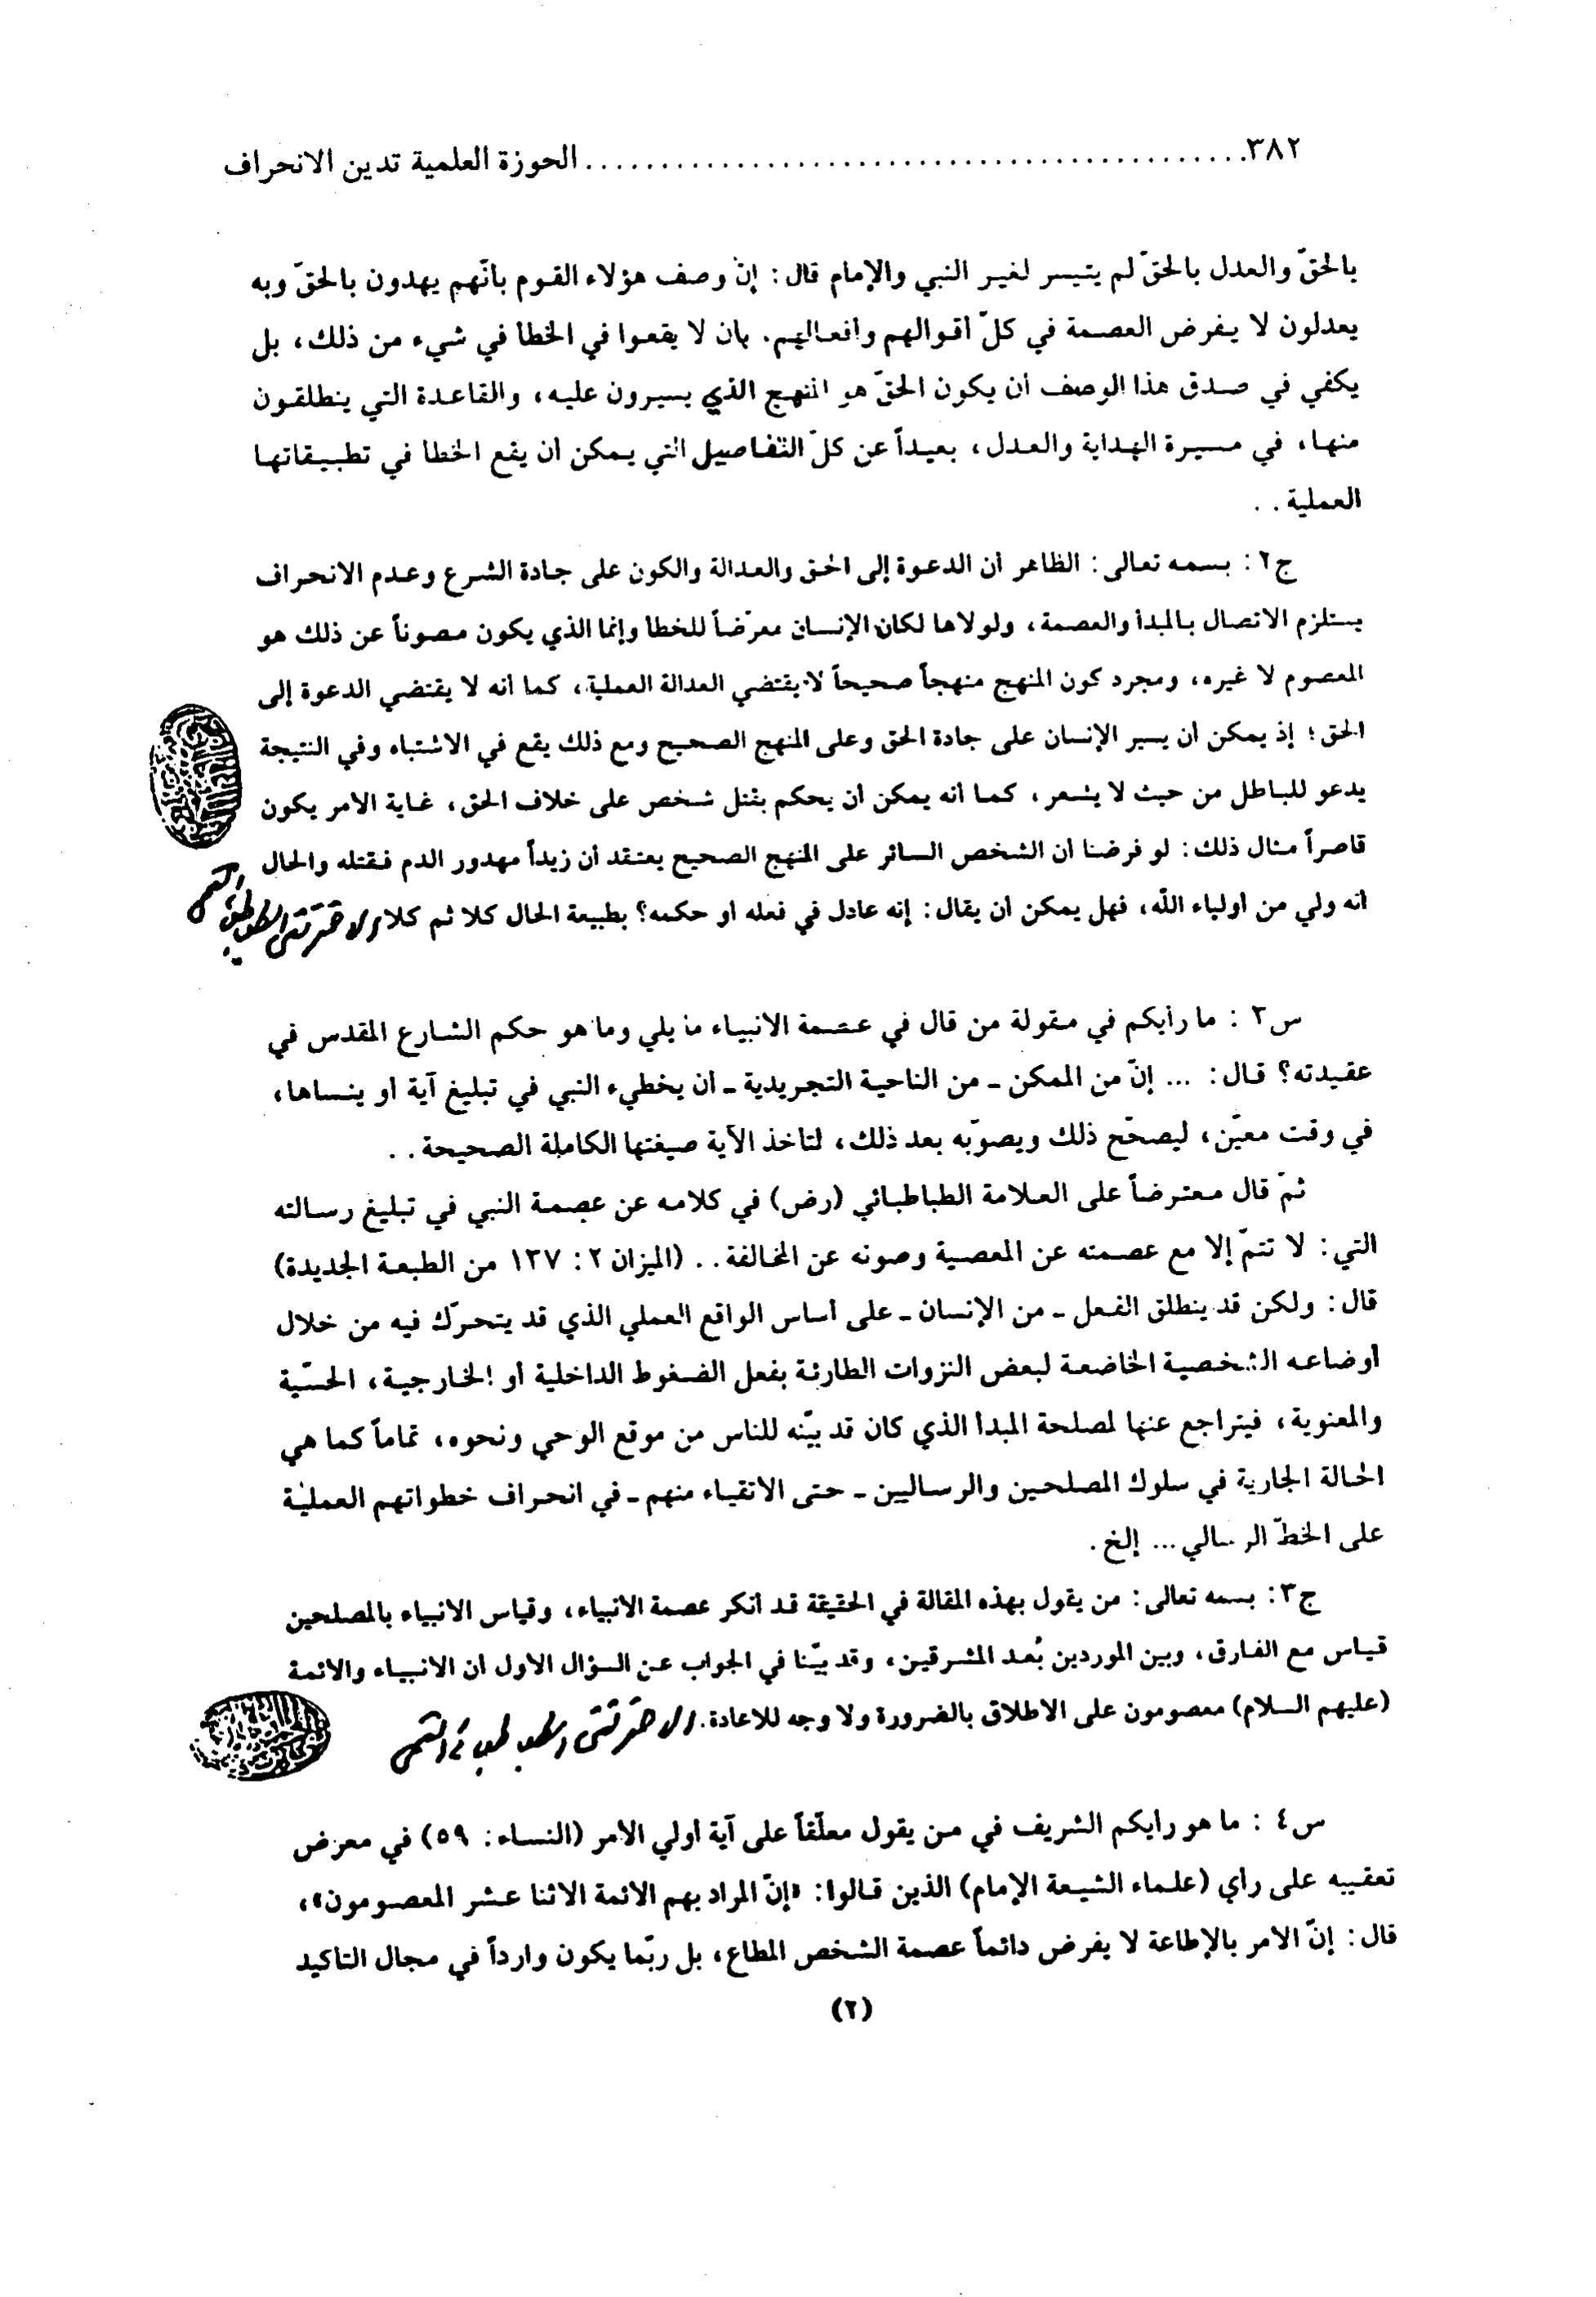 ٣٨٢............................................الحوزة العلمية تدين الانحراف
بالحقّ والعدل بالحقّ لم يتيسر لغير النبي والإمام قال: إنّ وصف هؤلاء القوم بأنّهم يهدون بالحقّ وبه
يعدلون لا يفرض العصمة في كلّ أقوالهم وأفعالهم. بأن لا يقعوا في الخطأ في شيء من ذلك، بل
يكفي في صدق هذا الوصف أن يكون الحقّ هو المنهج الذي يسيرون عليه، والقاعدة التي ينطلقون
منها، في مسيرة الهداية والعدل، بعيداً عن كلّ التفاصيل التي يمكن أن يقع الخطأ في تطبيقاتها
العملية . .
ج٢: بسمه تعالى: الظاهر أن الدعوة إلى الحق والعدالة والكون على جادة الشرع وعدم الانحراف
يستلزم الاتصال بالمبدأ والعصمة، ولولاها لكان الإنسان معرّضاً للخطأ وإنما الذي يكون مصوناً عن ذلك هو
المعصوم لا غيره، ومجرد كون المنهج منهجاً صحيحاً لا يقتضي العدالة العملية، كما أنه لا يقتضي الدعوة إلى
الحق؛ إذ يمكن أن يسير الإنسان على جادة الحق وعلى المنهج الصحيح ومع ذلك يقع في الاشتباه وفي النتيجة
يدعو للباطل من حيث لا يشعر، كما أنه يمكن أن يحكم بقتل شخص على خلاف الحق، غاية الأمر يكون
قاصراً مثال ذلك: لو فرضنا أن الشخص السائر على المنهج الصحيح يعتقد أن زيداً مهدور الدم فقتله والحال
أنه ولي من أولياء الله، فهل يمكن أن يقال: إنه عادل في فعله أو حكمه؟ بطبيعة الحال كلا ثم كلا
س٣ : ما رأيكم في مقولة من قال في عصمة الأنبياء ما يلي وما هو حكم الشارع المقدس في
عقيدته؟ قال: ... إنّ من الممكن ـ من الناحية التجريدية ـ أن يخطيء النبي في تبليغ آية أو ينساها،
في وقت معيّن، ليصحّح ذلك ويصوّبه بعد ذلك، لتأخذ الآية صيغتها الكاملة الصحيحة . .
ثمّ قال معترضاً على العلامة الطباطبائي (رض) في كلامه عن عصمة النبي في تبليغ رسالته
التي: لا تتمّ إلا مع عصمته عن المعصية وصونه عن المخالفة . . (الميزان ٢: ١٣٧ من الطبعة الجديدة)
قال: ولكن قد ينطلق الفعل ـ من الإنسان ـ على أساس الواقع العملي الذي قد يتحرّك فيه من خلال
أوضاعه الشخصية الخاضعة لبعض النزوات الطارئة بفعل الضغوط الداخلية أو الخارجية، الحسّية
والمعنوية، فيتراجع عنها لمصلحة المبدأ الذي كان قد بيّنه للناس من موقع الوحي ونحوه، تماماً كما هي
الحالة الجارية في سلوك المصلحين والرساليين ـ حتى الأتقياء منهم ـ في انحراف خطواتهم العملية
على الخطّ الرسالي ... إلخ .
ج٣: بسمه تعالى: من يقول بهذه المقالة في الحقيقة قد أنكر عصمة الأنبياء، وقياس الأنبياء بالمصلحين
قياس مع الفارق، وبين الموردين بُعد المشرقين، وقد بيّنا في الجواب عن السؤال الأول أن الأنبياء والأئمة
(عليهم السلام) معصومون على الاطلاق بالضرورة ولا وجه للاعادة.
س٤ : ما هو رأيكم الشريف في من يقول معلّقاً على آية أولي الأمر (النساء: ٥٩) في معرض
تعقيبه على رأي (علماء الشيعة الإمام) الذين قالوا: «إنّ المراد بهم الأئمة الاثنا عشر المعصومون»،
قال: إنّ الأمر بالإطاعة لا يفرض دائماً عصمة الشخص المطاع، بل ربّما يكون وارداً في مجال التأكيد
(٢)